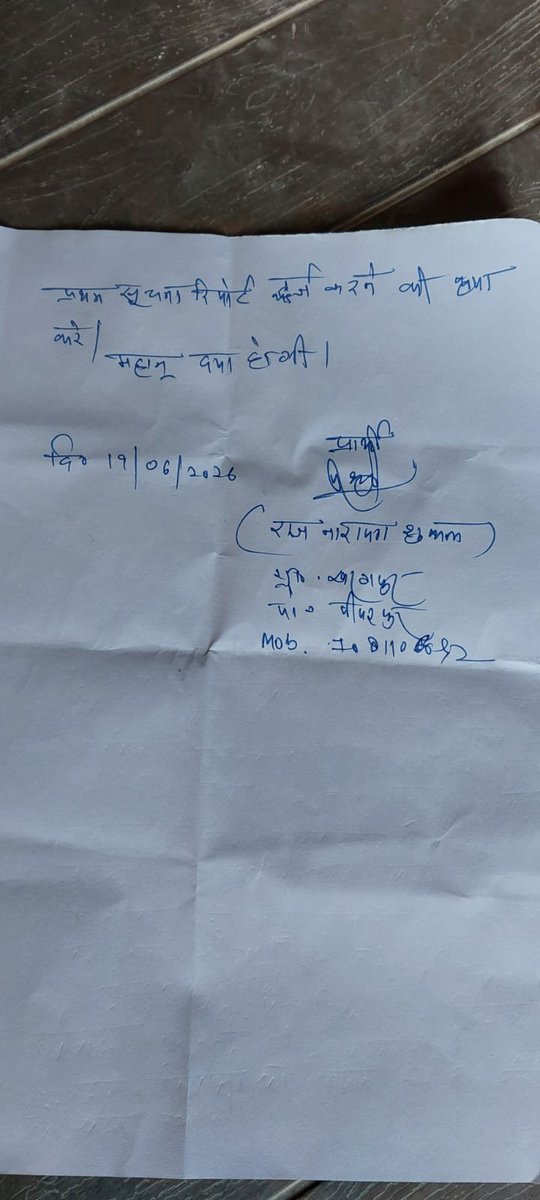 प्रथम सूचना रिपोर्ट दर्ज करने की कृपा
करे।
महान् दया होगी।
दि० 19/06/2026
प्रार्थी
(राज नारायण शुक्ल)
पीपरपुर
Mob.